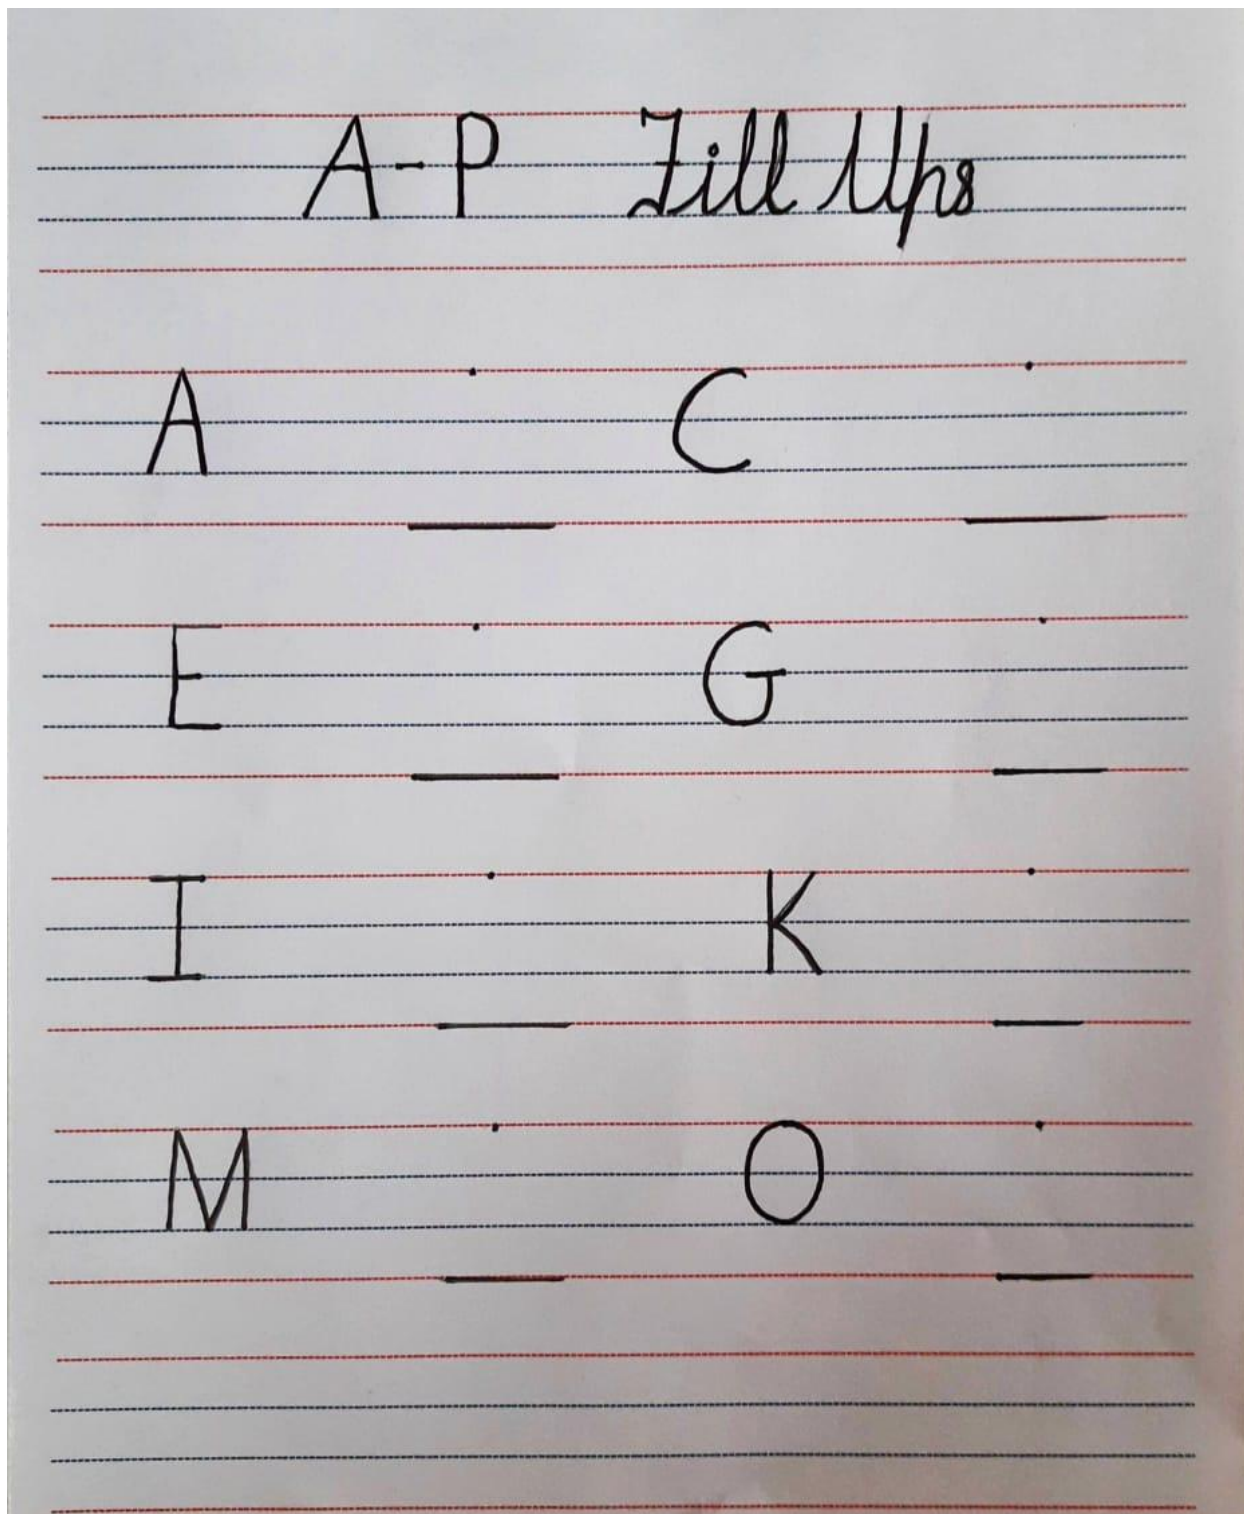 A-P Fill Ups
A . __ C . __
E . __ G . __
I . __ K . __
M . __ O . __